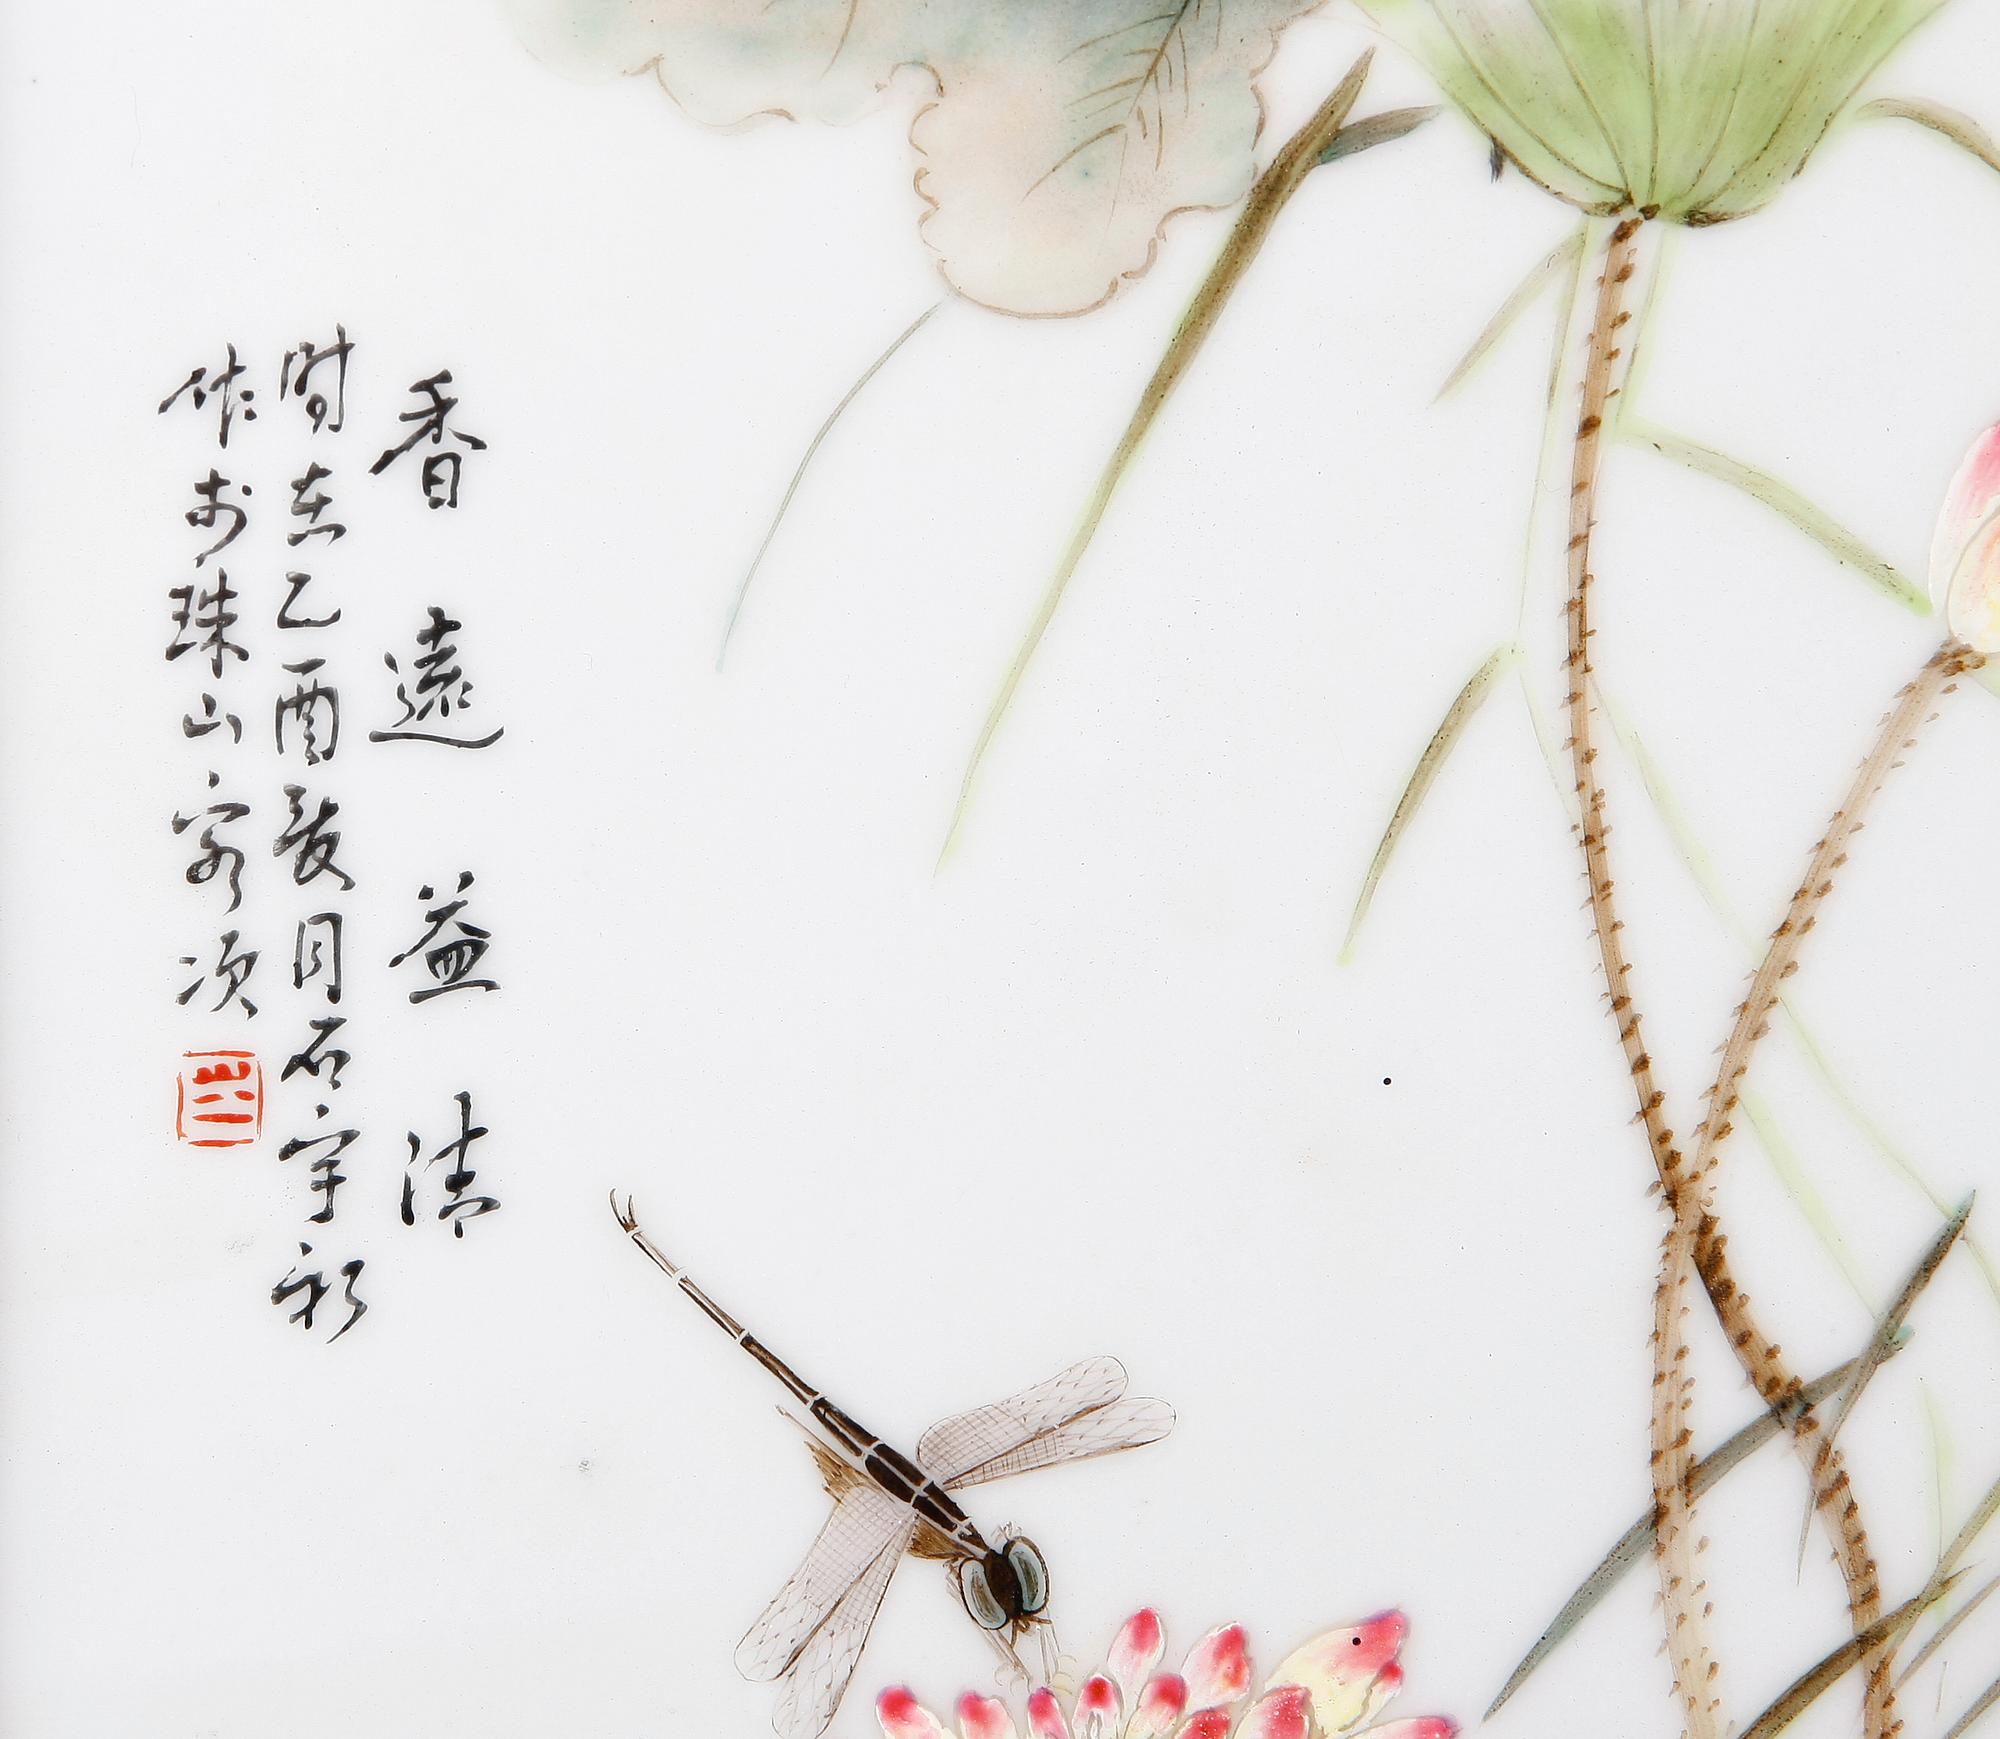 香遠益清
時在乙酉荷月石宇初
作於珠山客次